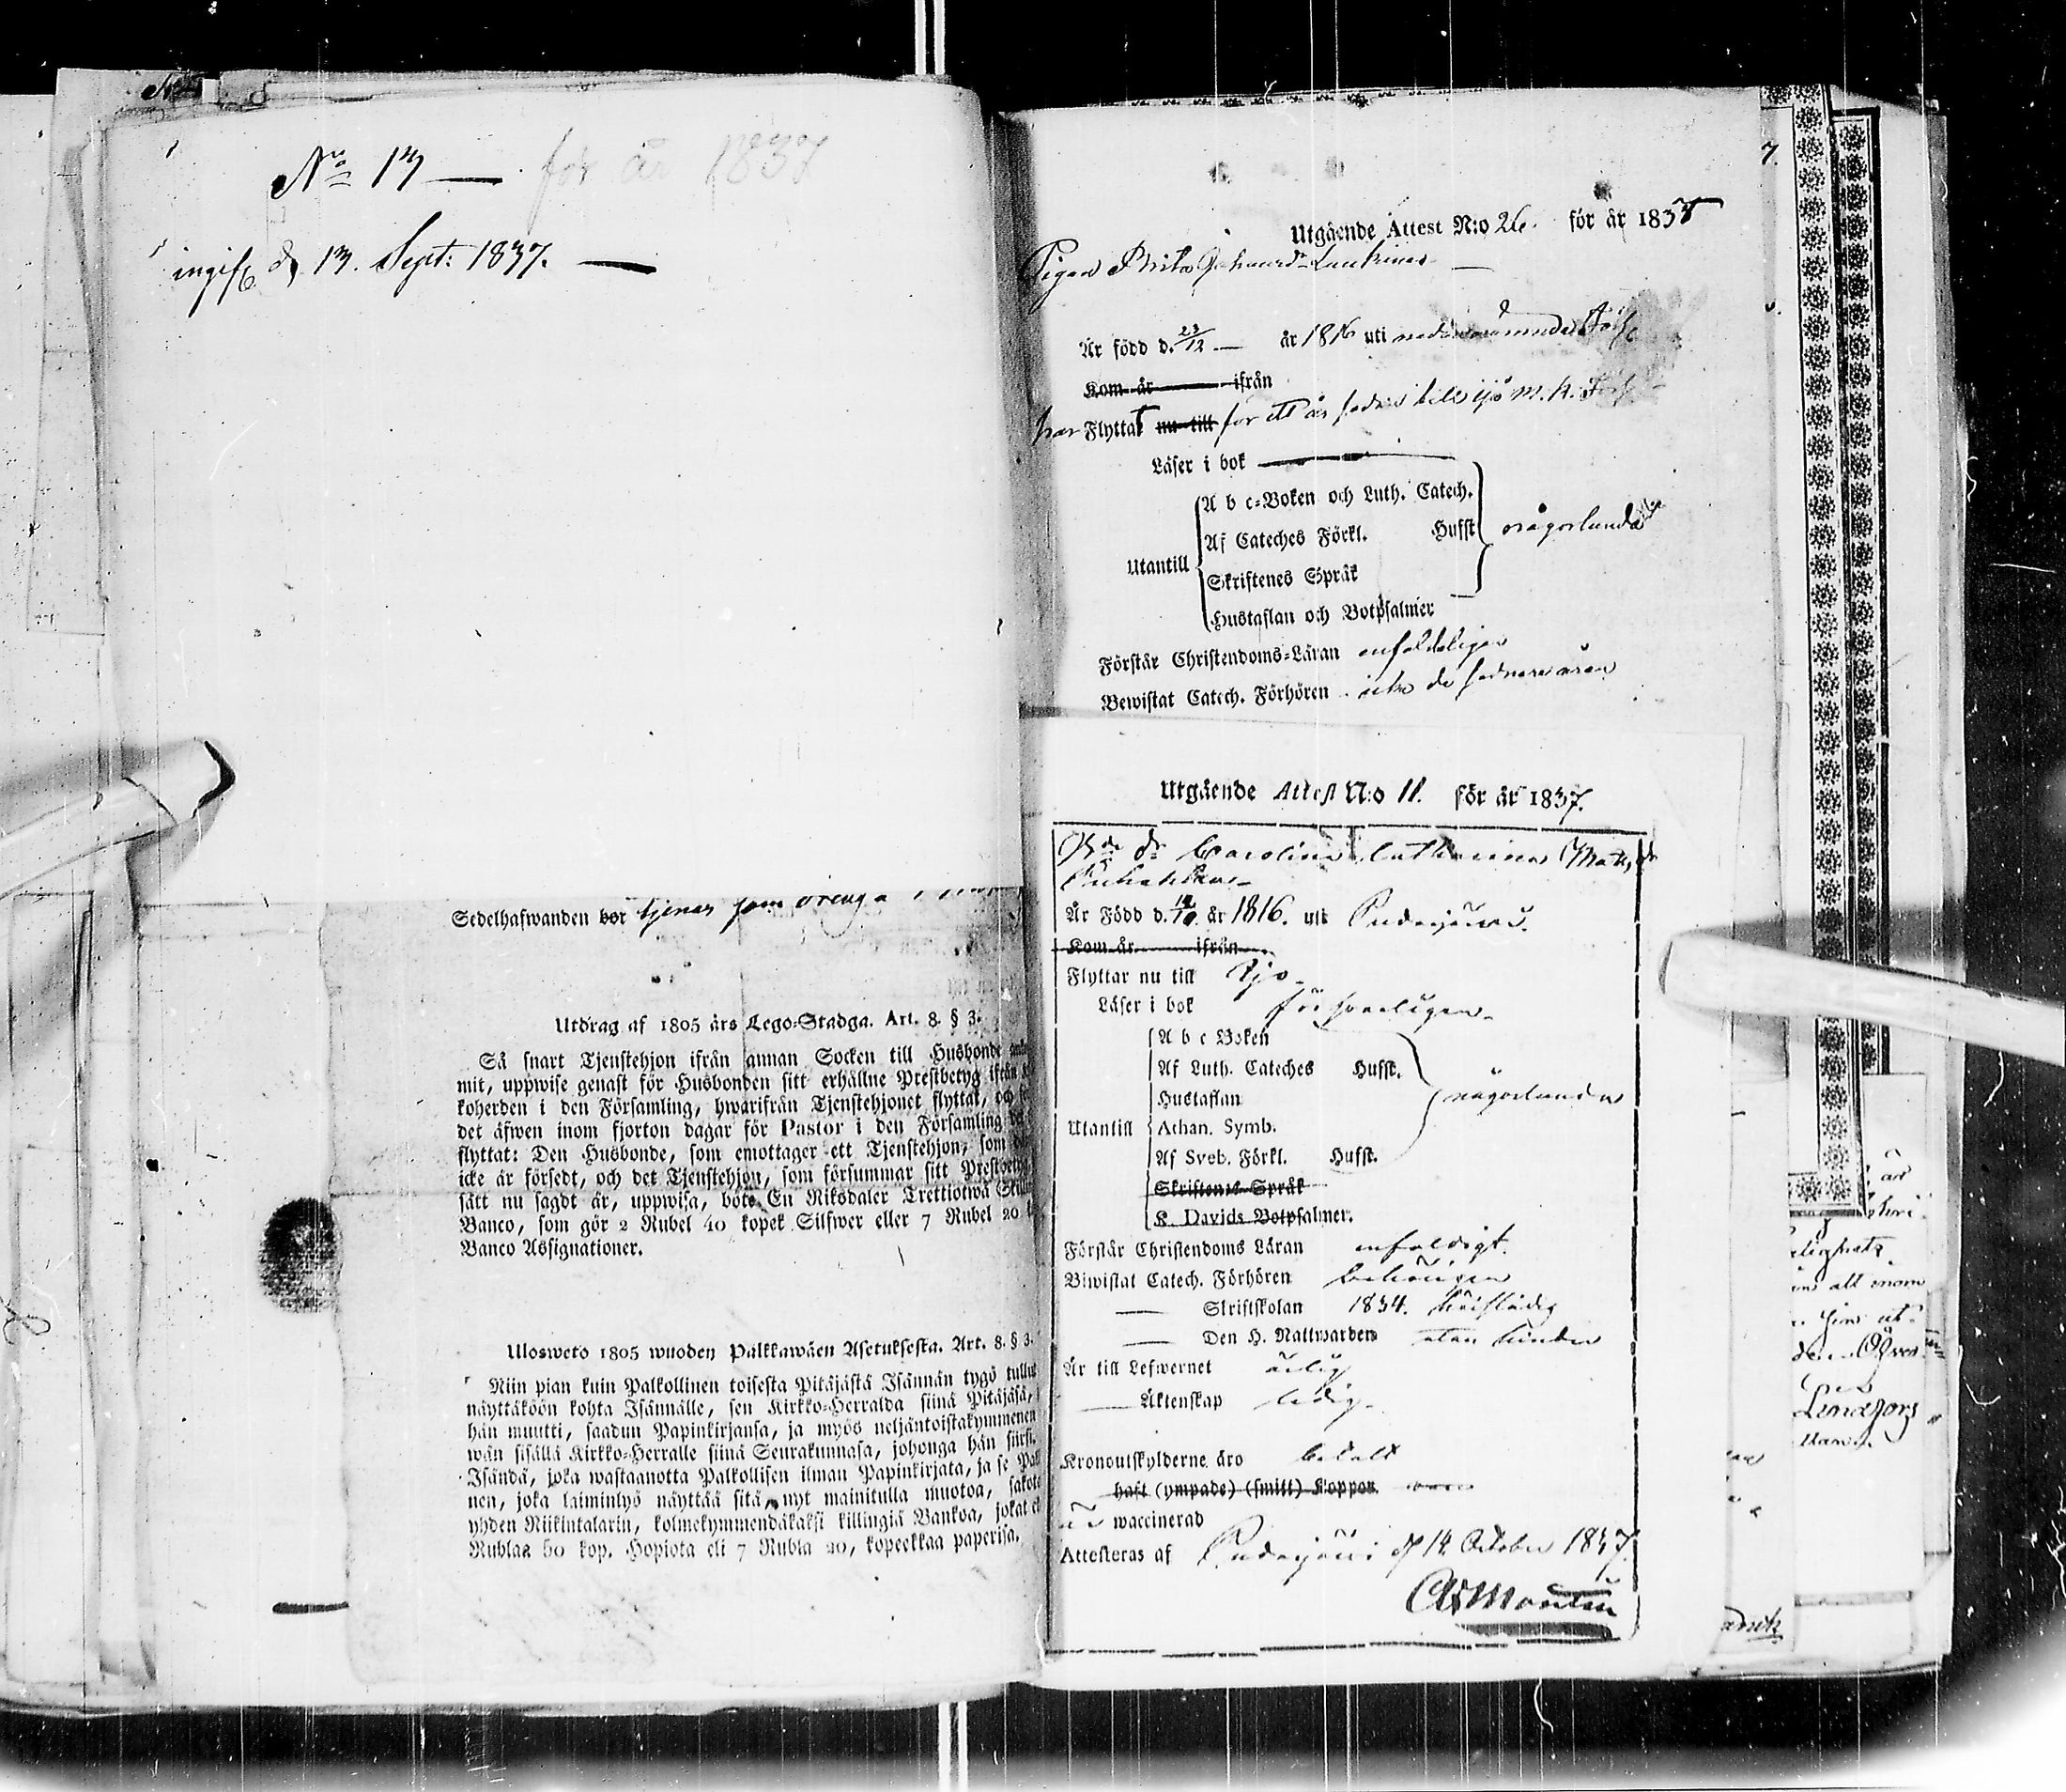 No 13 — för år 1837
ingifv. d. 13. Sept: 1837. —
Sedelhafwanden bor tjenar som dreng
Utdrag af 1805 års Lego-Stadga. Art. 8. § 3.
Så snart Tjenstehjon ifrån annan Socken till Husbonde
mit, uppwise genast för Husbonden sitt erhållne Prestbetyg ifrån
koherden i den Församling, hwarifrån Tjenstehjonet flyttat, och
det äfwen inom fjorton dagar för Pastor i den Församling
flyttat: Den Husbonde, som emottager ett Tjenstehjon, som
icke är försedt, och det Tjenstehjon, som försummar sitt Prestbetyg
sätt nu sagdt är, uppwisa, böte En Riksdaler Trettiotwå Skill
Banco, som gör 2 Rubel 40 kopek Silfwer eller 7 Rubel 20
Banco Assignationer.
Ulosweto 1805 wuoden Palkkawäen Asetuksesta. Art. 8. § 3.
Niin pian kuin Palkollinen toisesta Pitäjästä Isännän tygö tullut
näyttäköön kohta Isännälle, sen Kirkko-Herralda siinä Pitäjäsä,
hän muutti, saadun Papinkirjansa, ja myös neljäntoistakymmenen
wän sisällä Kirkko-Herralle siinä Seurakunnasa, johonga hän siirsi.
Isändä, joka wastaanotta Palkollisen ilman Papinkirjata, ja se Pal
nen, joka laiminlyö näyttää sitä, nyt mainitulla muotoa, sakote
yhden Riikintalarin, kolmekymmendäkaksi killingiä Bankoa, jokat
Rublaa 60 kop. Hopiota eli 7 Rubla 20, kopeekkaa paperisa.
Utgående Attest N:o 26. för år 1837
Pigan Brita Johansdr
Är född d. 23/12 — år 1816 uti nedannämnde Förs.
Kom år ifrån
har Flyttat nu till för ett år sedan till Ijo M. K. Förs.
Läser i bok —
A b c-Boken och Luth. Catech.
Af Cateches Förkl. Hufst någorlunda
Utantill
Skriftenes Språk
Hustaflan och Botpsalmer
Förstår Christendoms-Läran enfaldeligen
Bewistat Catech. Förhören icke de sednare åren
Utgående Attest N:o 11. för år 1837.
dr Carolina Catharina Matsdr
Är Född d. år 1816. uti Pudasjärvi.
Kom år ifrån
Flyttar nu till Ijo
Läser i bok försvarligen
A b c Boken
Af Luth. Cateches Hufst.
Hustaflan någorlunda
Utantill Athan. Symb.
Af Sveb. Förkl. Hufst.
Skriftenes Språk
K. Davids Botpsalmer.
Förstår Christendoms Läran enfaldigt.
Biwistat Catech. Förhören behörigen
— Skriftskolan 1834.
— Den H. Nattwarden utan hinder
Är till Lefwernet ärlig
— Äktenskap ledig
Kronoutskylderne äro betalt
haft (ympade) (smitt) Koppor
är waccinerad
Attesteras af Pudasjärvi d 14 October 1837.